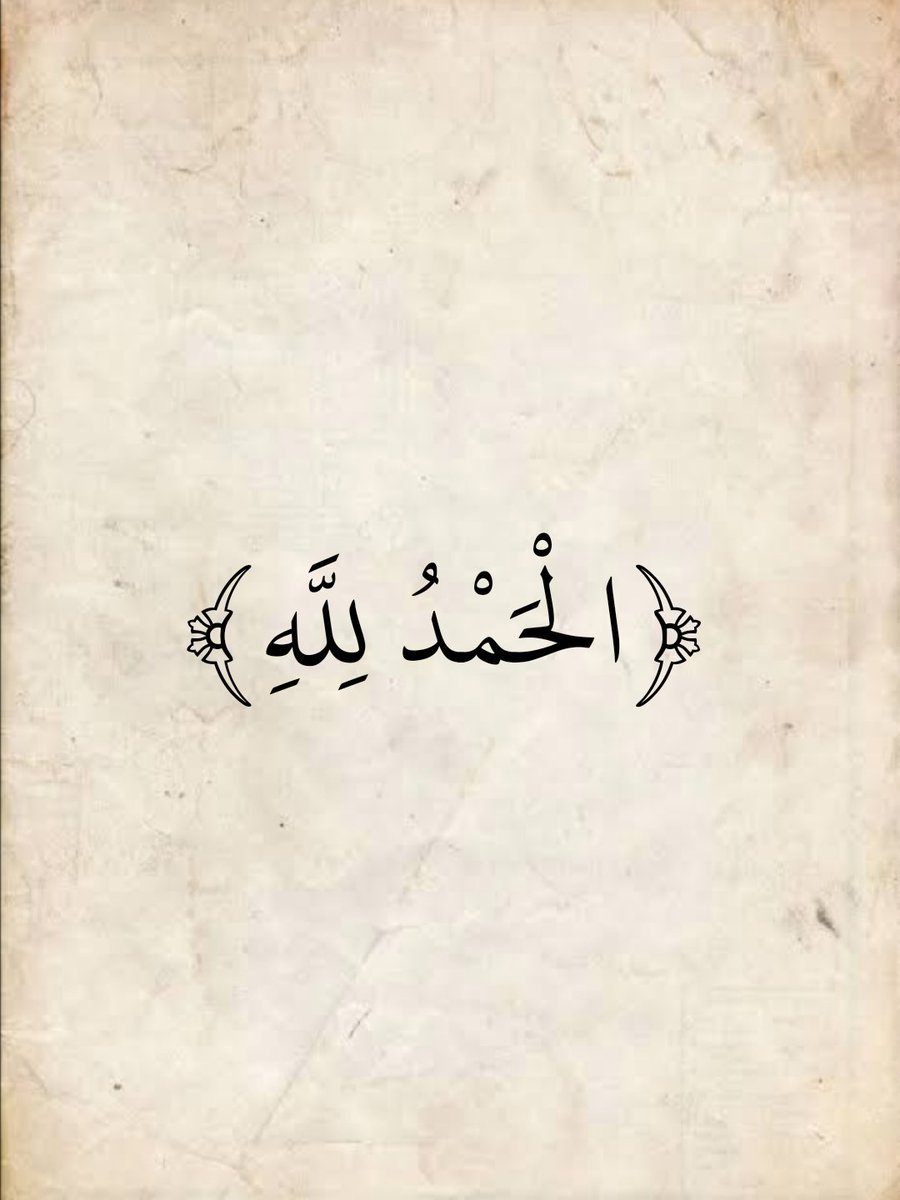 ﴿ الْحَمْدُ لِلَّهِ ﴾